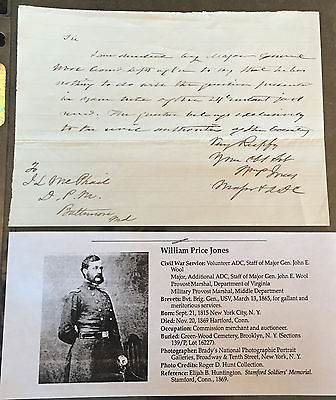 Sir
I am directed by Major General
Wool Com'd'g 8th to say that he has
nothing to do with the question presented
in your note of the 24 instant just
rec'd. The belongs exclusively
to the civil authorities of the County
Very Respy
Your Obt Svt
W P Jones
Major & ADC
To
J L McPhail
D. P. M.
Baltimore
Md
William Price Jones
Civil War Service: Volunteer ADC, Staff of Major Gen. John E.
Wool
Major, Additional ADC, Staff of Major Gen. John E. Wool
Provost Marshal, Department of Virginia
Military Provost Marshal, Middle Department
Brevets: Bvt. Brig. Gen., USV, March 13, 1865, for gallant and
meritorious services.
Born: Sept. 21, 1815 New York City, N. Y.
Died: Nov. 20, 1869 Hartford, Conn.
Occupation: Commission merchant and auctioneer.
Buried: Green-Wood Cemetery, Brooklyn, N. Y. (Sections
139/P, Lot 16227).
Photographer: Brady's National Photographic Portrait
Galleries, Broadway & Tenth Street, New York, N. Y.
Photo Credits: Roger D. Hunt Collection.
Reference: Elijah B. Huntington. Stamford Soldiers' Memorial.
Stamford, Conn., 1869.